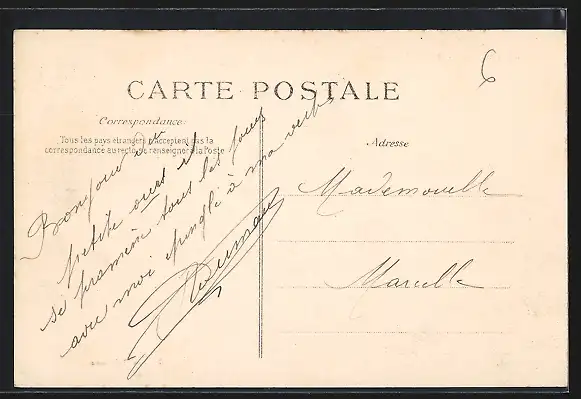 6
CARTE POSTALE
Correspondance:
Tous les pays étrangers n'acceptent pas la
correspondance au recto, se renseigner à la Poste
Adresse
Bonjour d'un
petite ours et
se promène tous les jours
avec moi épinglé à ma veste
Mademoiselle
Marcelle